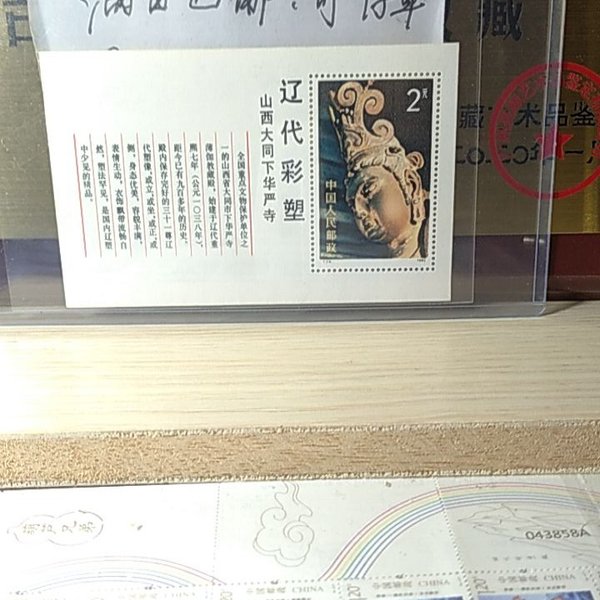 藏
术品鉴
2元
中国人民邮政
辽代彩塑
山西大同下华严寺
全国重点文物保护单位之
一的山西省大同市下华严寺
薄伽教藏殿，始建于辽代重
熙七年（公元一〇三八年），
距今已有九百多年的历史。
殿内保存完好的三十一尊辽
代塑像，或立，或坐，或正，或
侧，身态优美，容貌丰满，
表情生动，衣饰飘带流畅自
然，塑法罕见，是国内辽塑
中少见的精品。
葫芦兄弟
043858A
中国邮政 CHINA
中国邮政 CHINA